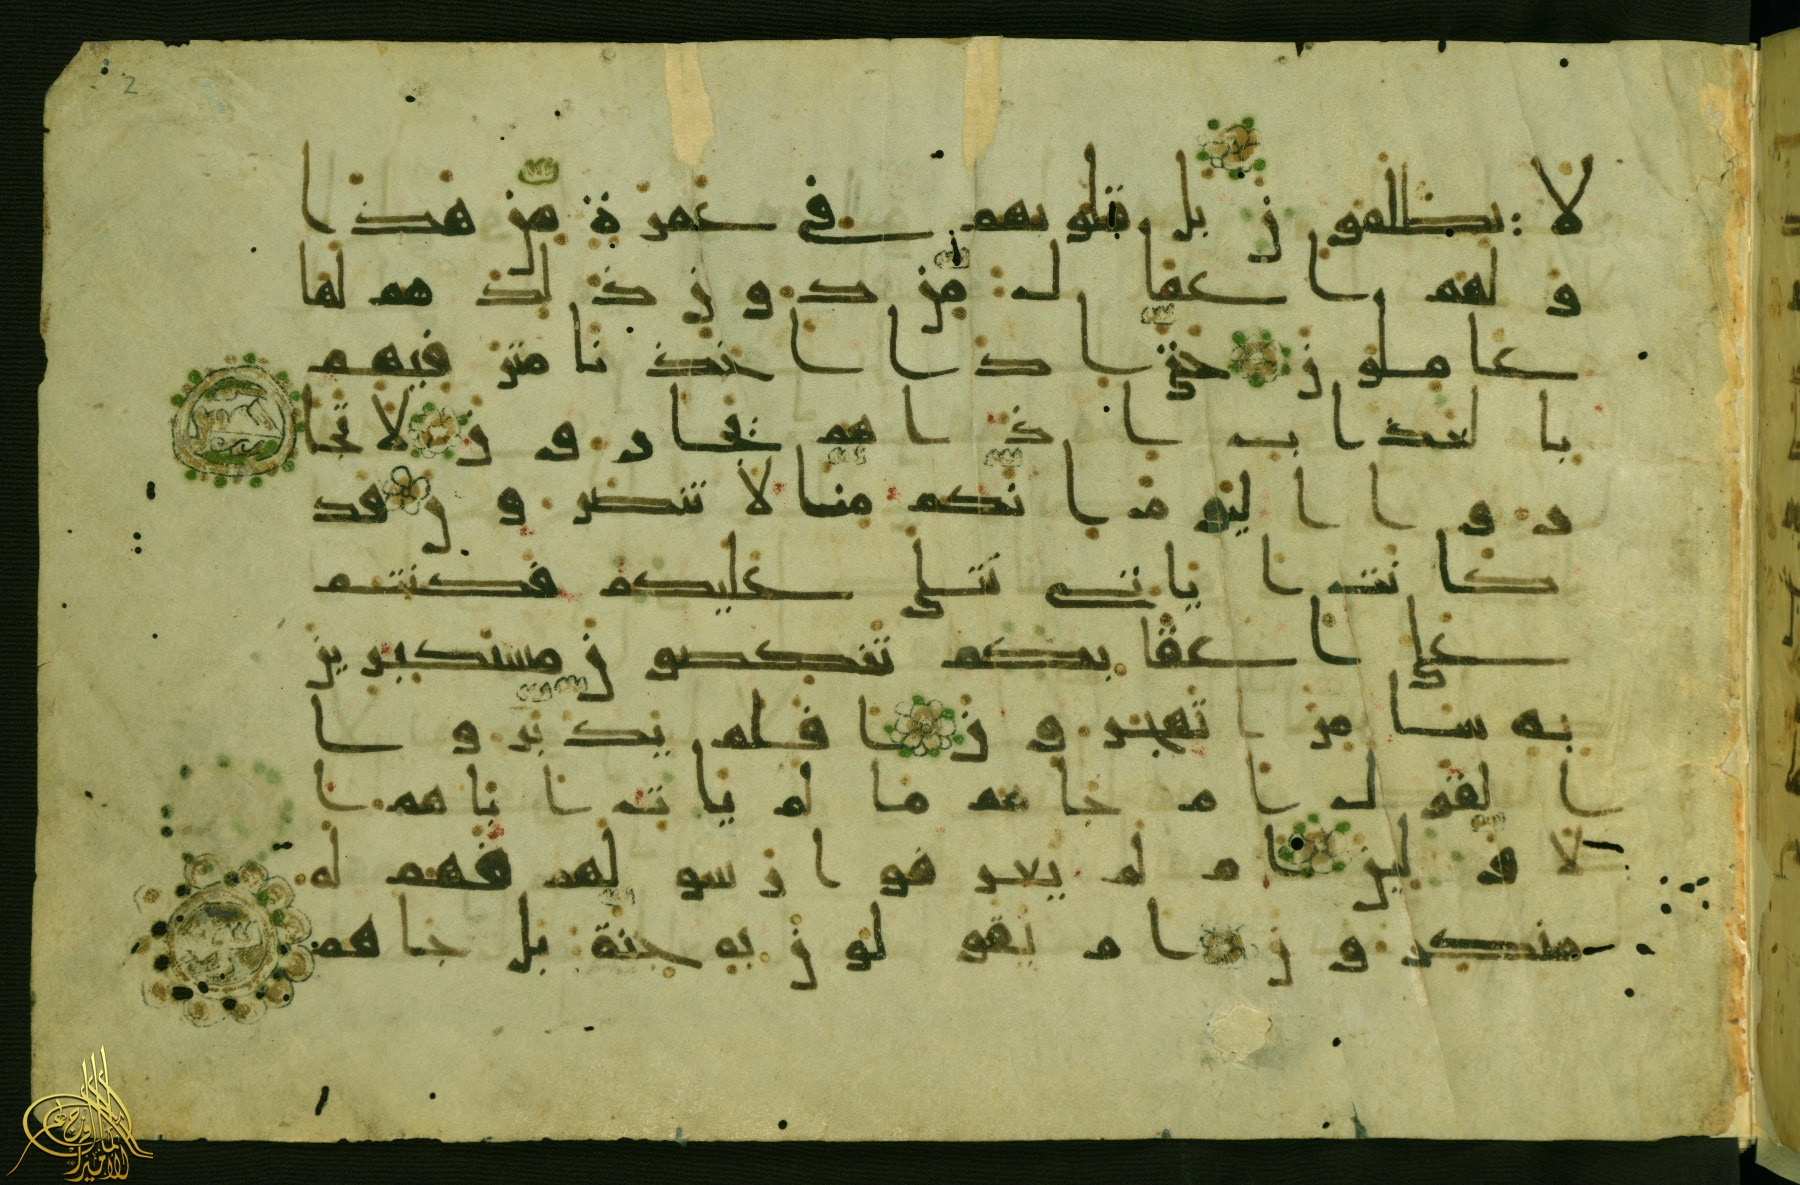 2
لا يظلمون بل قلوبهم في غمرة من هذا
ولهم اعمال من دون ذلك هم لها
عاملون حتى اذا اخذنا مترفيهم
بالعذاب اذا هم يجارون لا تجا
روا اليوم انكم منا لا تنصرون قد
كانت اياتي تتلى عليكم فكنتم
على اعقابكم تنكصون مستكبرين
به سامرا تهجرون افلم يدبروا
القول ام جاهم ما لم يات اباهم ا
لاولين ام لم يعرفوا رسولهم فهم له
منكرون ام يقولون به جنة بل جاهم